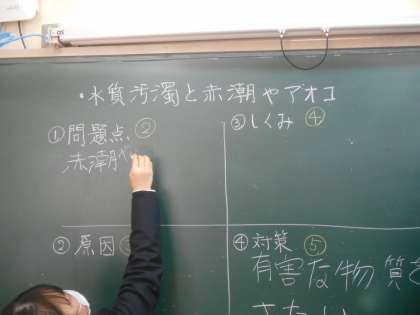 ・水質汚濁と赤潮やアオコ
①問題点 ②
赤潮や
③しくみ ④
②原因
④対策 ⑤
有害な物質を